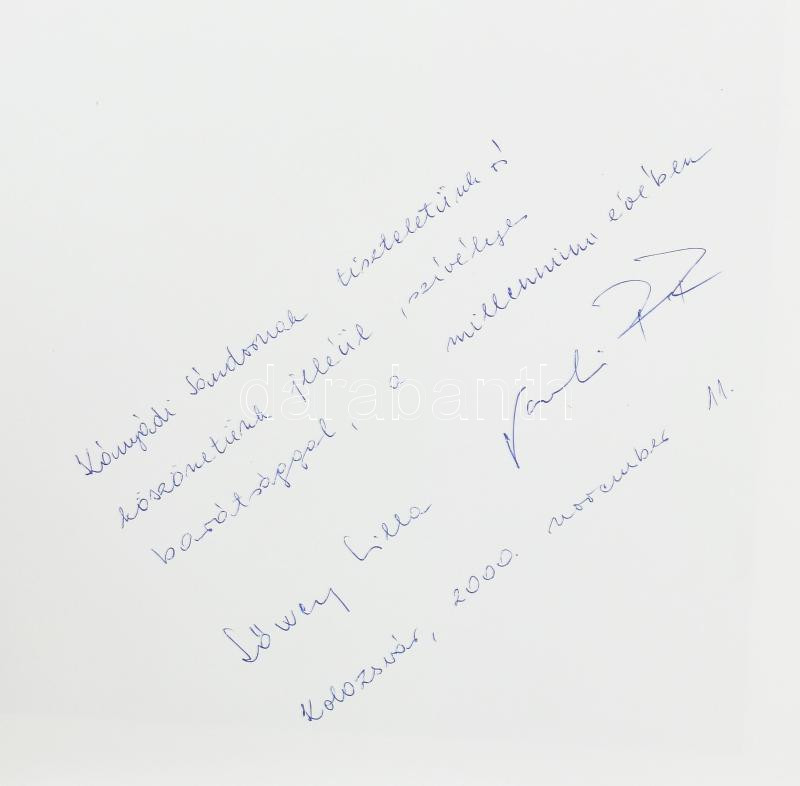 Kányádi Sándornak tiszteletünk és
köszönetünk jeléül, szívélyes
barátsággal, a millenniumi évében
Lőwey Lilla
Kolozsvár, 2000. november 11.
darabanth